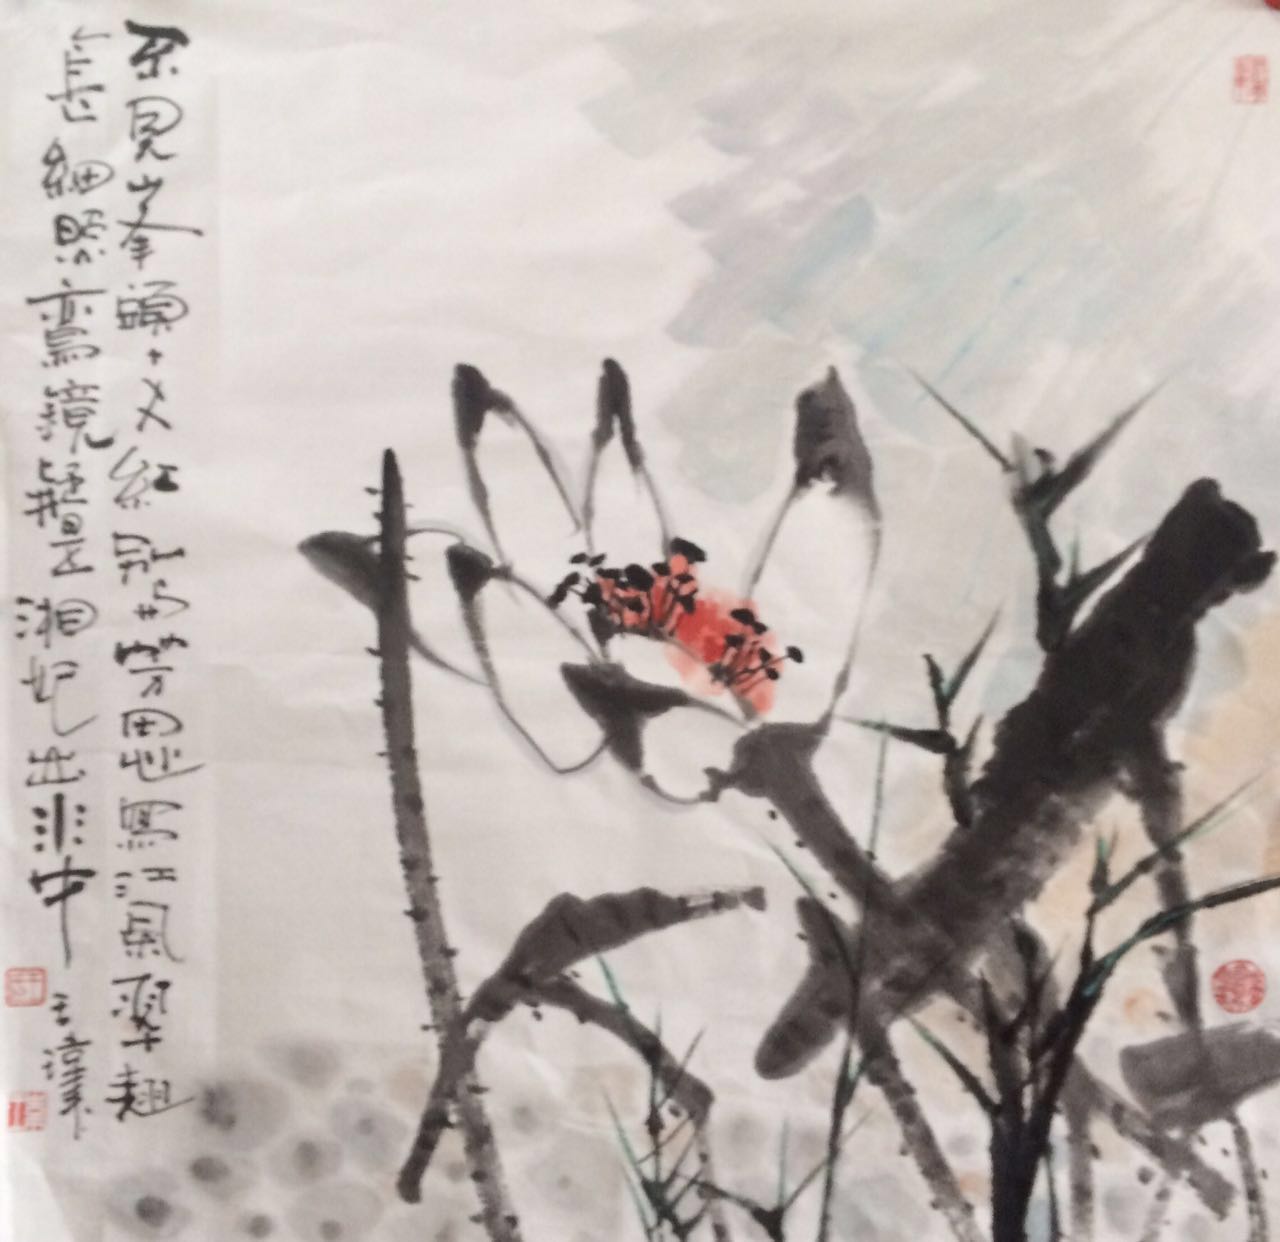 不見峯頭十丈紅別將芳思寫江風翠翹
細照鸞鏡疑是湘妃出水中
王